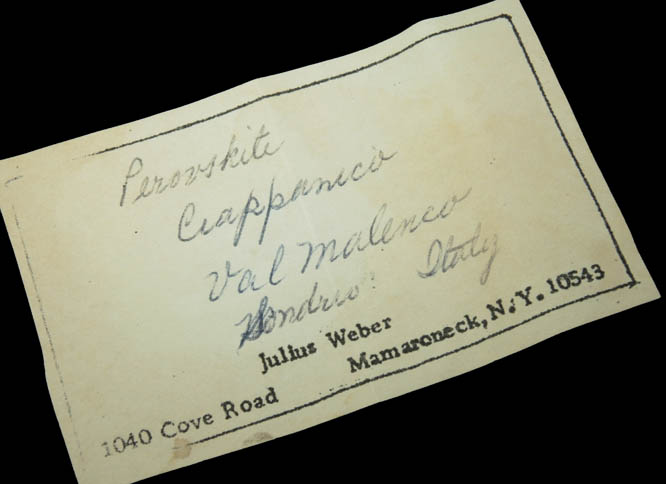 Perovskite
Ciappanico
Val Malenco
Sondrio Italy
Julius Weber
1040 Cove Road Mamaroneck, N.Y. 10543